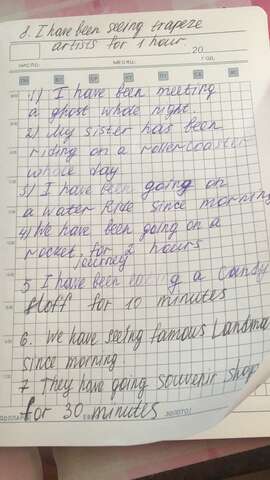 8. I have been seeing trapeze
artists for 1 hour
20
ЧИСЛО: МЕСЯЦ: ГОД:
1) I have been meeting
a ghost whole night.
2) My sister has been
riding on a rollercoaster
whole day
3) I have been going on
a water Ride since morning
4) We have been going on a
rocket for 2 hours
journey
5 I have been a candy
floff for 10 minutes
6. We have seeing famous Landma
since morning
7 They have going souvenir shop
for 30 minutes
ДОЛЛАР ЕВРО ЗОЛОТО